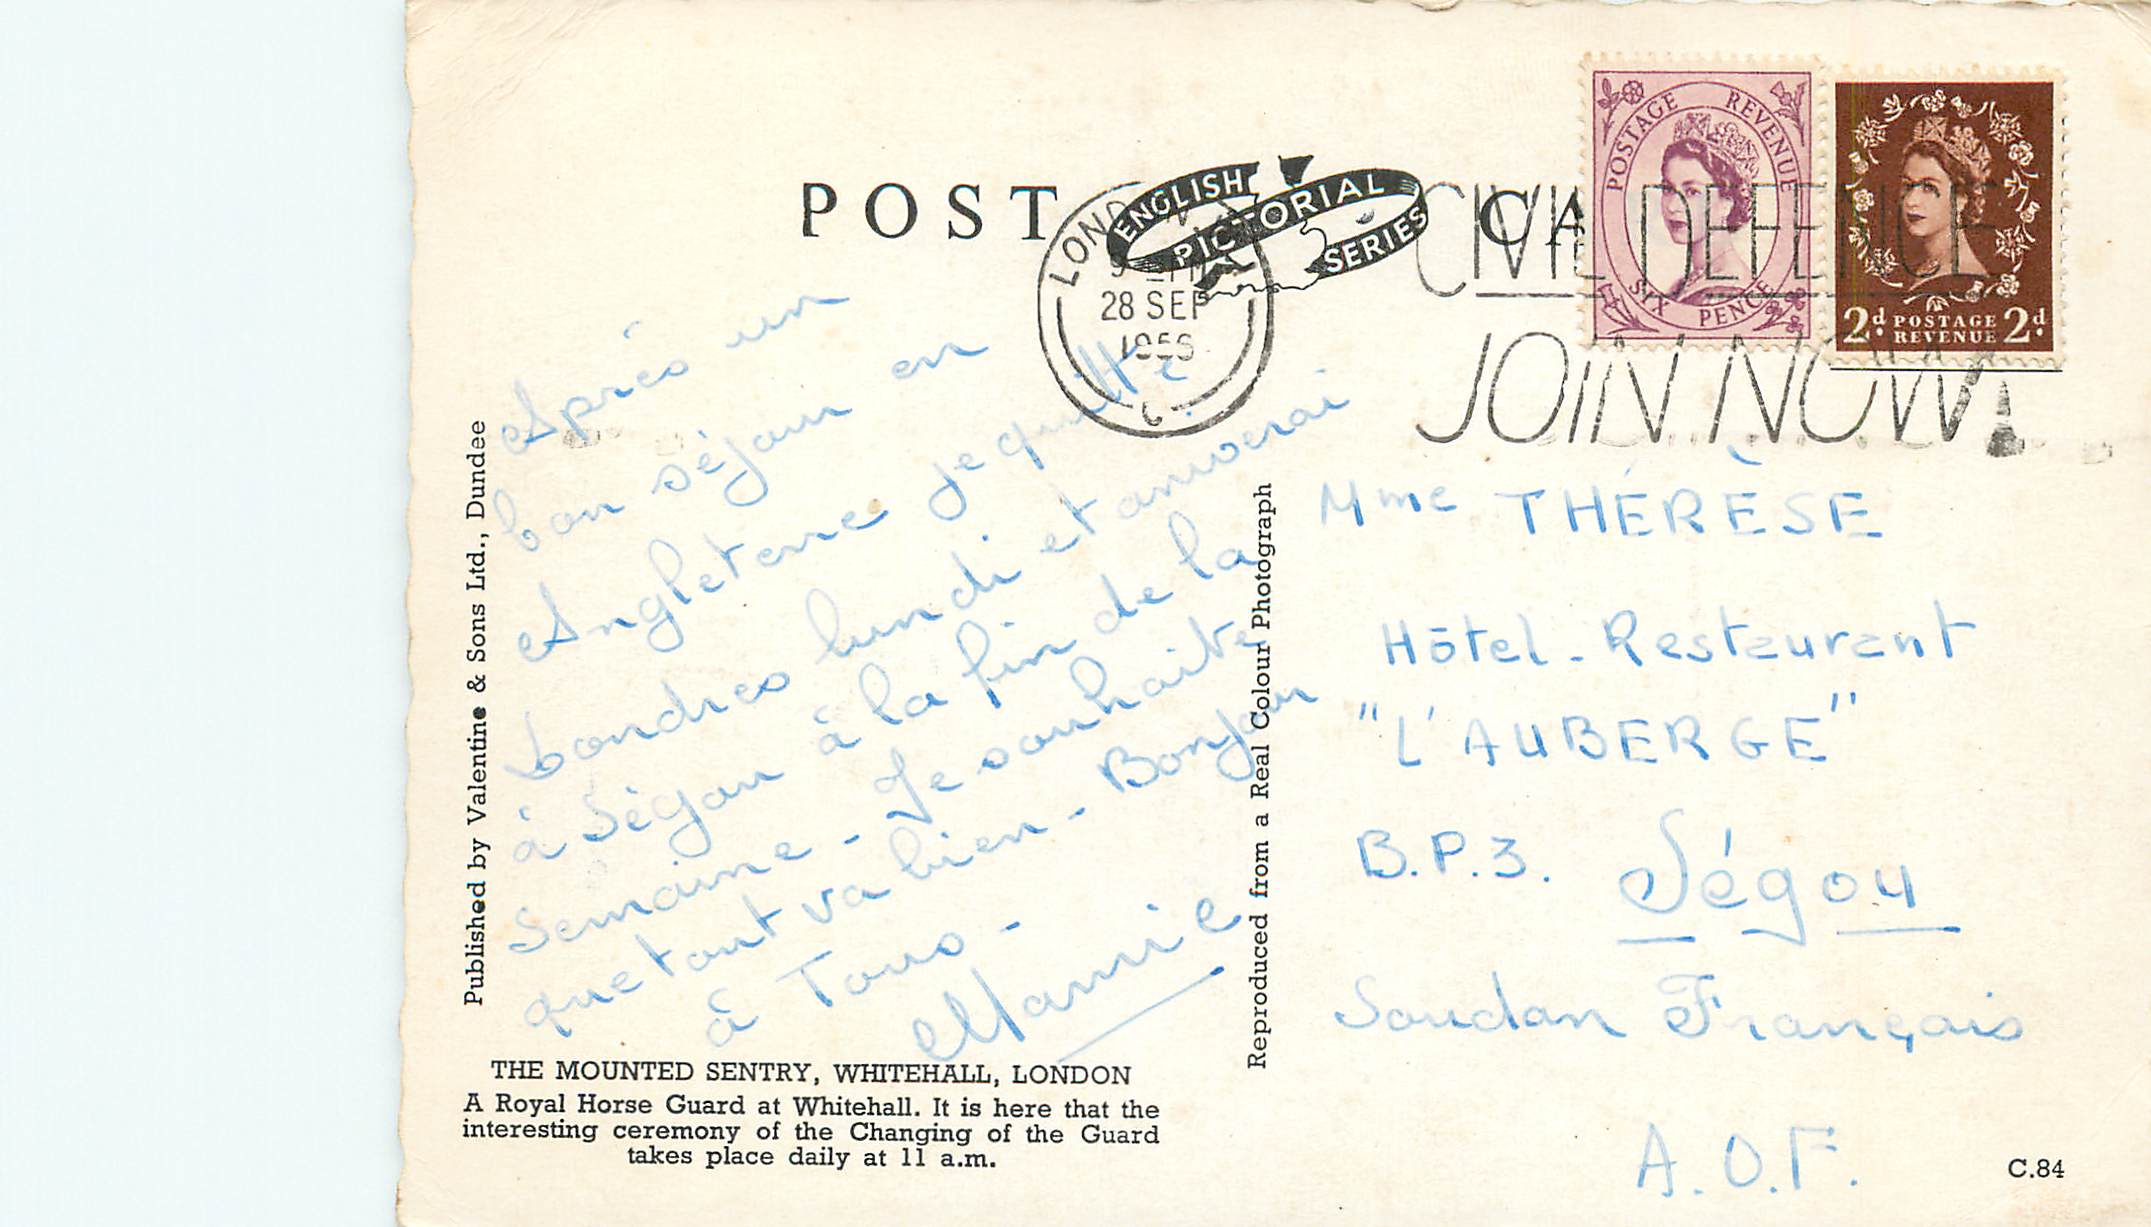 POST CA
ENGLISH
PICTORIAL
SERIES
LONDON
28 SEP
CIVIL DEFENCE
JOIN NOW!
POSTAGE REVENUE
SIX PENCE
2d. POSTAGE REVENUE 2d.
Après un
bon séjour en
Angleterre je quitte
Londres lundi et arriverai
à Ségou à la fin de la
semaine - Je souhaite
que tout va bien - Bonjour
à Tous -
Published by Valentine & Sons Ltd., Dundee
Reproduced from a Real Colour Photograph
Mme THÉRÈSE
Hôtel - Restaurant
"L'AUBERGE"
B.P.3. Ségou
Soudan Français
A.O.F.
THE MOUNTED SENTRY, WHITEHALL, LONDON
A Royal Horse Guard at Whitehall. It is here that the
interesting ceremony of the Changing of the Guard
takes place daily at 11 a.m.
C.84